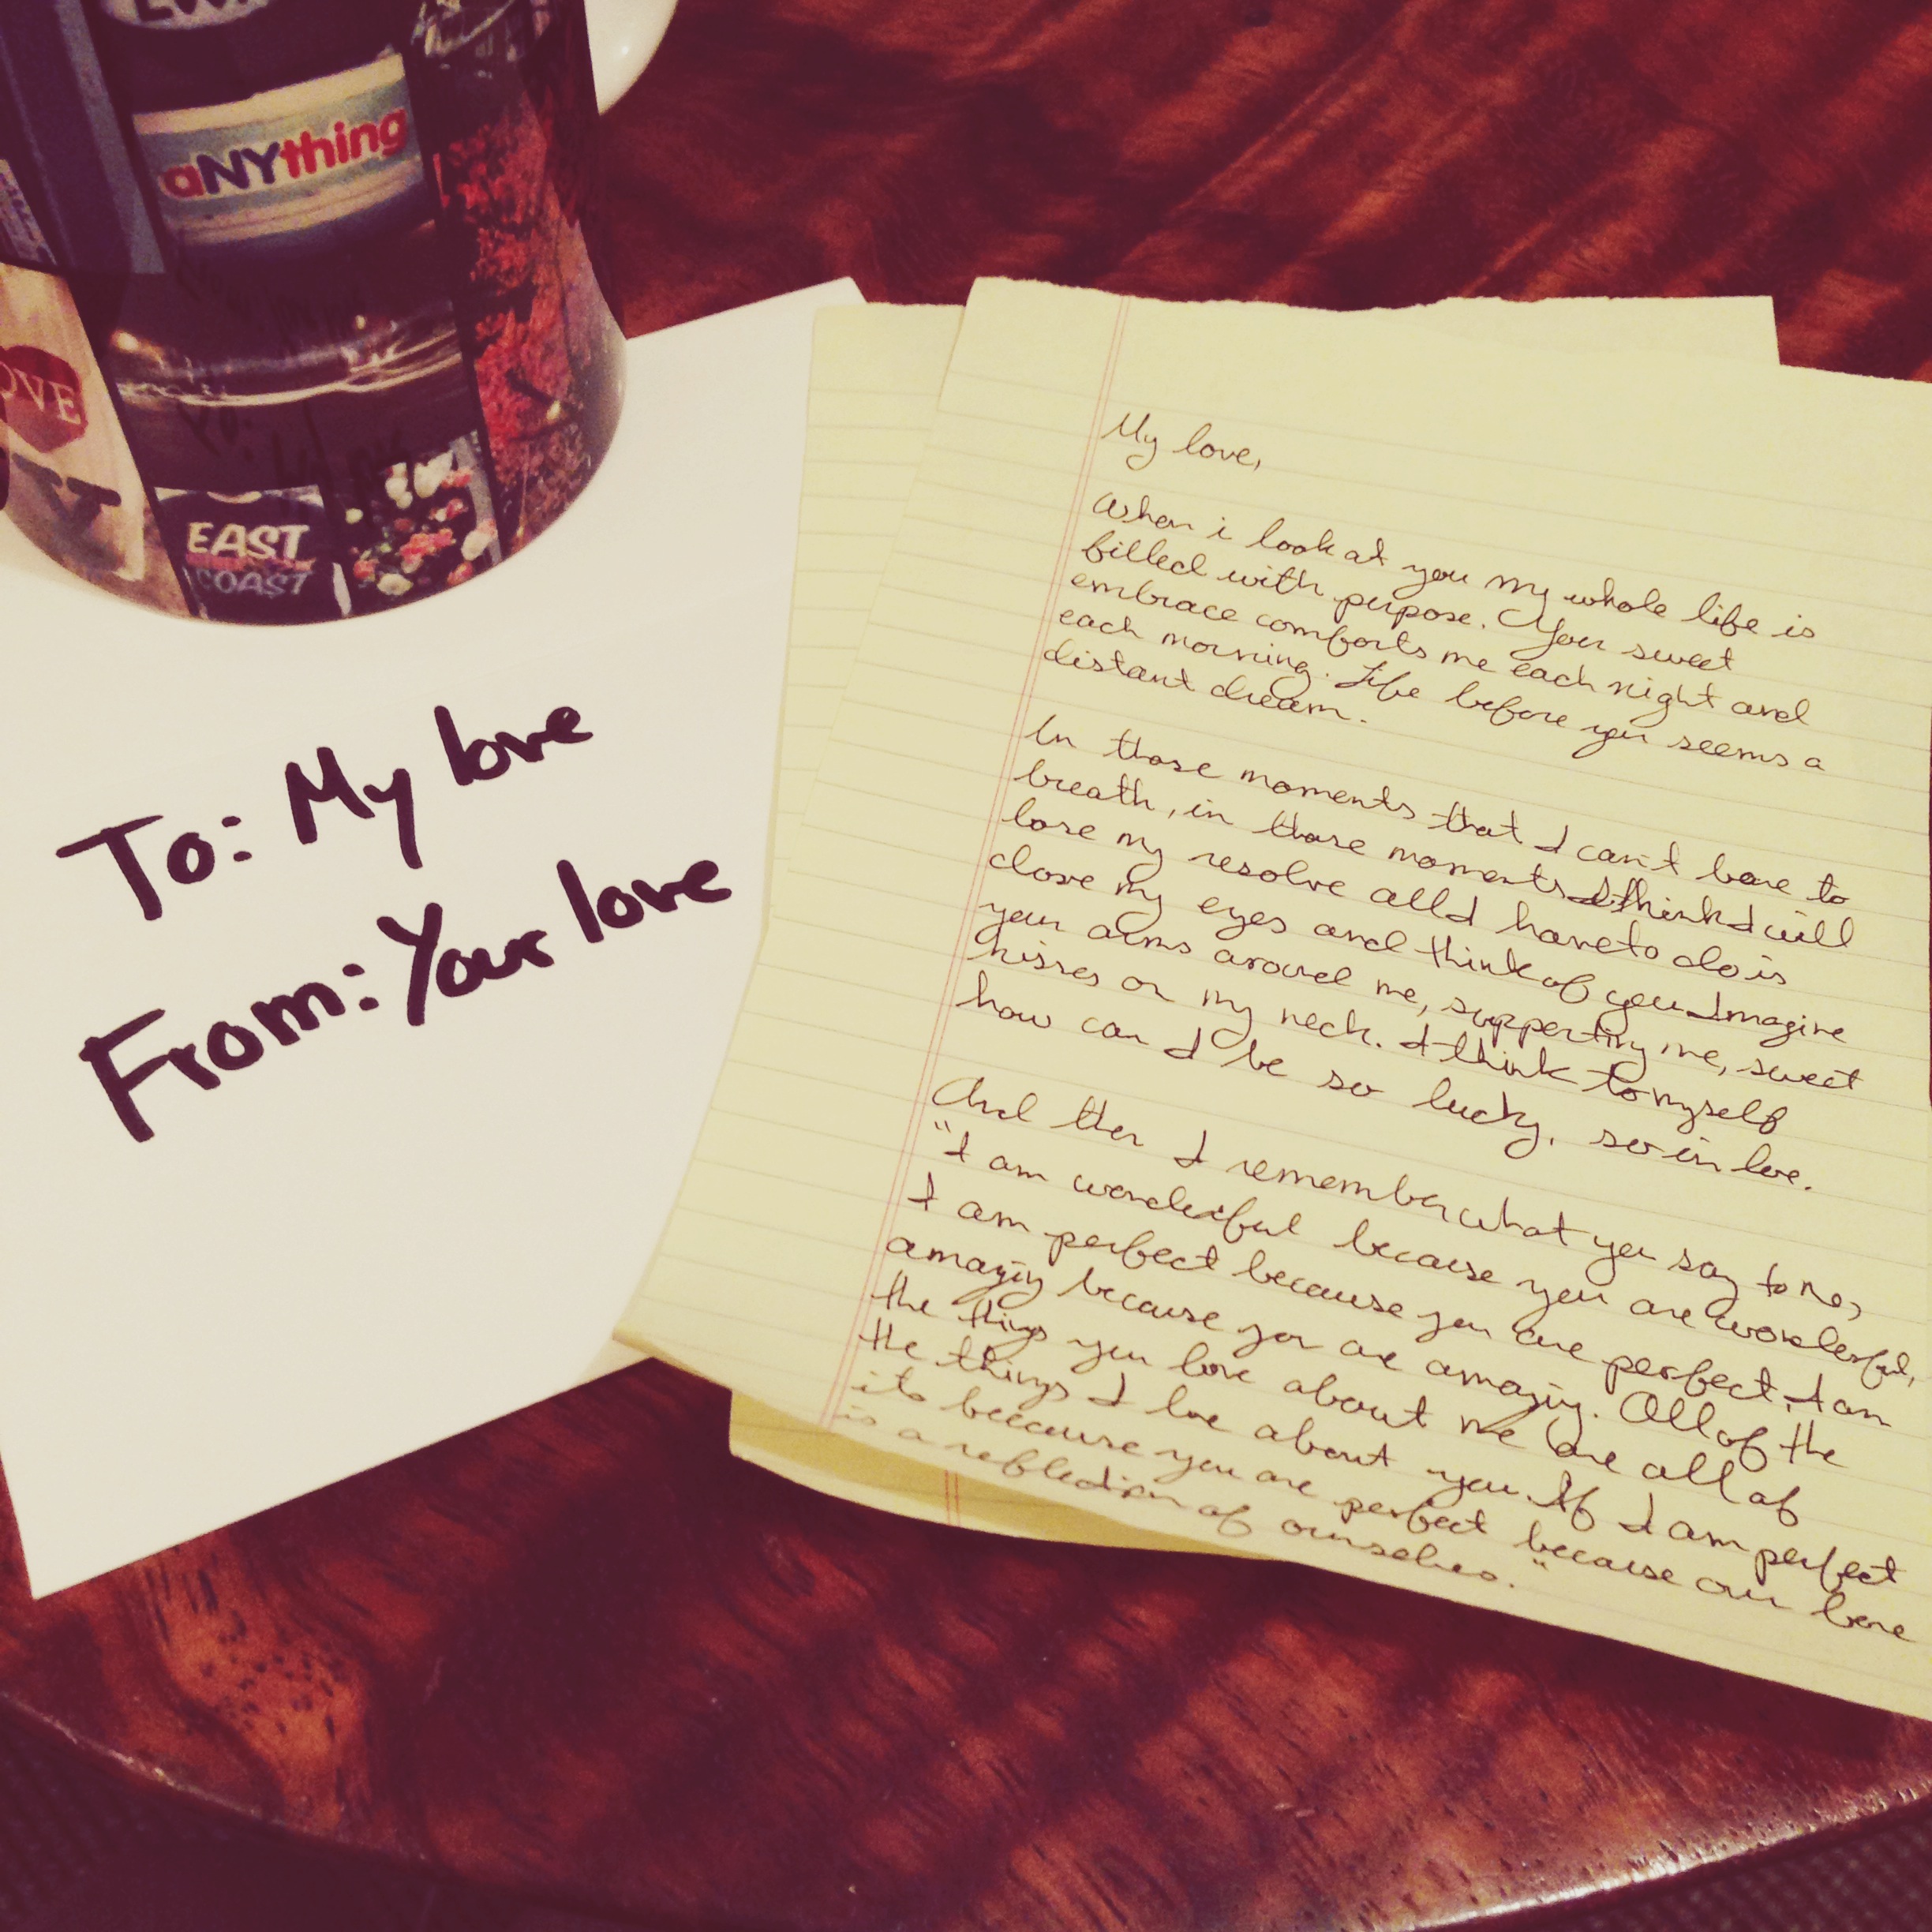 aNYthing
OVE
EAST
COAST
To: My love
From: Your love
My love,
When i look at you my whole life is
filled with purpose. Your sweet
embrace comforts me each night and
each morning. Life before you seems a
distant dream.
In those moments that I can't bare to
breath, in those moments I think I will
lose my resolve all I have to do is
close my eyes and think of you. Imagine
your arms around me, supporting me, sweet
kisses on my neck. I think to myself
how can I be so lucky, so in love.
And then I remember what you say to me,
"I am wonderful because you are wonderful,
I am perfect because you are perfect, I am
amazing because you are amazing. All of the
the things you love about me are all of
the things I love about you. If I am perfect
its because you are perfect because our love
is a reflection of ourselves."